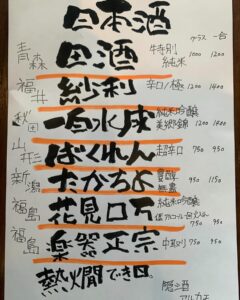 日本酒 グラス 一合
青森 田酒 特別純米 1000 1200
福井 紗利 辛口/極 1200 1400
秋田 一白水成 純米吟醸 美郷錦 1200 1400
山形 ばくれん 超辛口 750 950
新潟 たかちよ 豊醇無盡 950 1150
福島 花見ロマン 純米吟醸 低アルコール 750 950
福島 楽器正宗 中取り 750 950
熱燗できます。